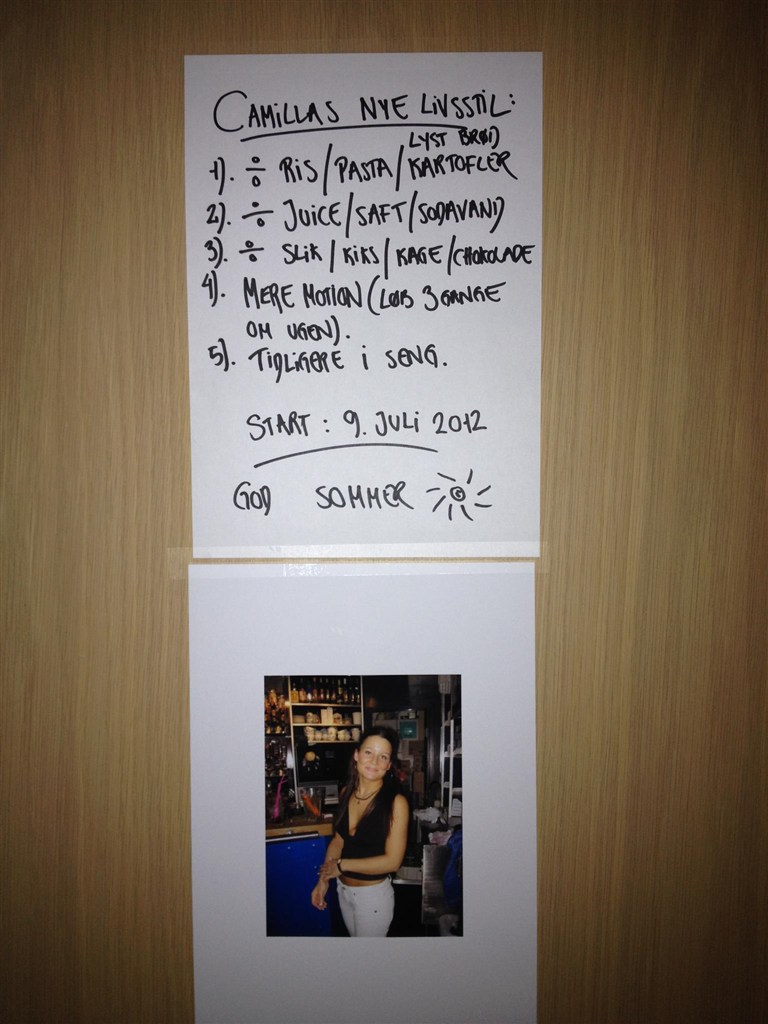 CAMILLAS NYE LIVSSTIL:
LYST BRØD
1). ÷ RIS/PASTA/KARTOFLER
2). ÷ JUICE/SAFT/SODAVAND
3). ÷ SLIK/KIKS/KAGE/CHOKOLADE
4). MERE MOTION (LØB 3 GANGE
OM UGEN).
5). TIDLIGERE I SENG.
START: 9. JULI 2012
GOD SOMMER